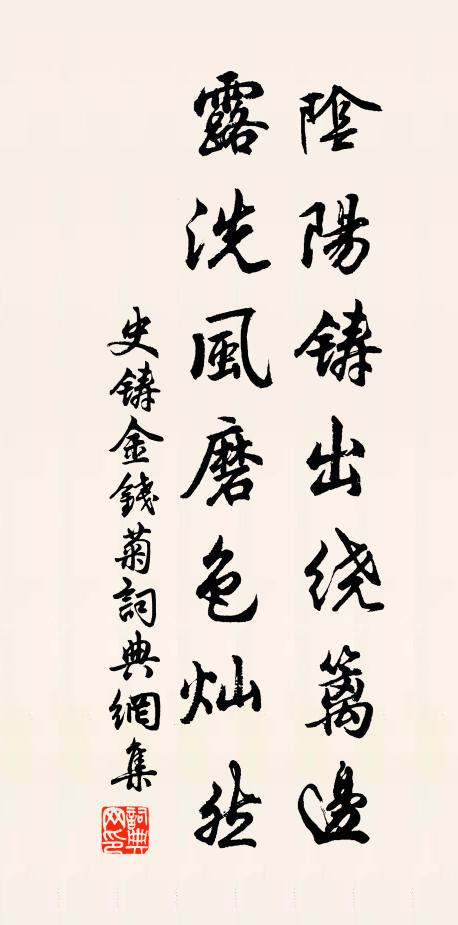 陰陽铸出绕篱邊
露洗風磨色灿然
史铸金錢菊詞典網集
詞典网印